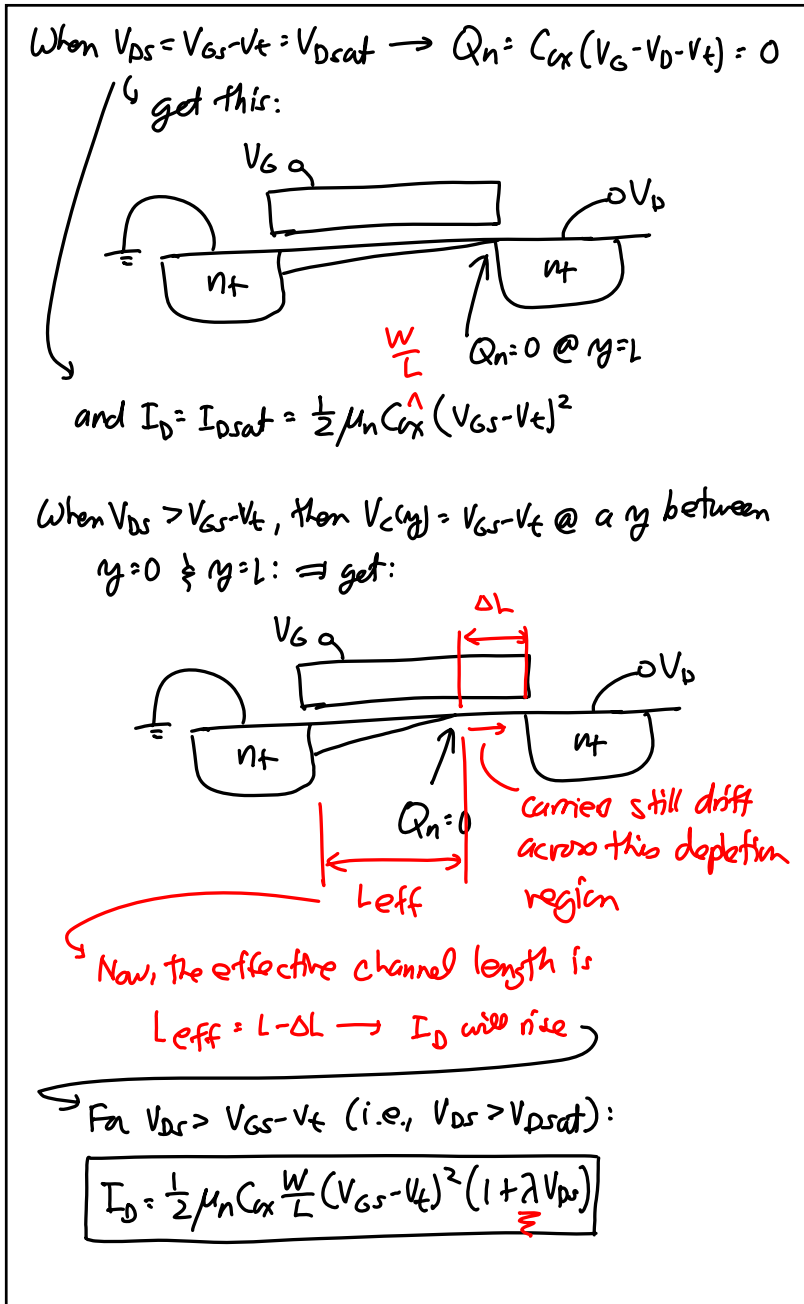 When V_DS = V_GS - V_t = V_Dsat → Q_n = C_ox (V_G - V_D - V_t) = 0
get this:
V_G
V_D
n+
n+
Q_n = 0 @ y = L
W/L
and I_D = I_Dsat = 1/2 μ_n C_ox ^ (V_GS - V_t)²
When V_DS > V_GS - V_t, then V_c(y) = V_GS - V_t @ a y between
y = 0 & y = L: ⇒ get:
ΔL
V_G
V_D
n+
n+
Q_n = 0
carriers still drift
across this depletion
region
Leff
Now, the effective channel length is
Leff = L - ΔL → I_D will rise
For V_DS > V_GS - V_t (i.e., V_DS > V_Dsat):
I_D = 1/2 μ_n C_ox W/L (V_GS - V_t)² (1 + λV_DS)